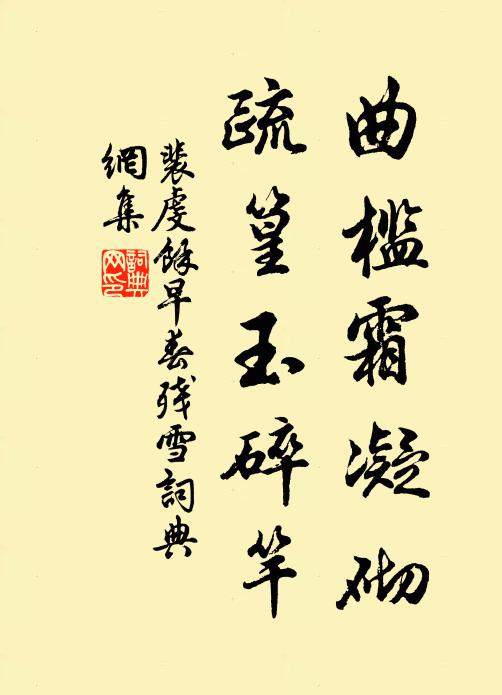 曲檻霜凝砌
疏篁玉碎竿
裴虔餘早春殘雪詞典
網集
詞典网印